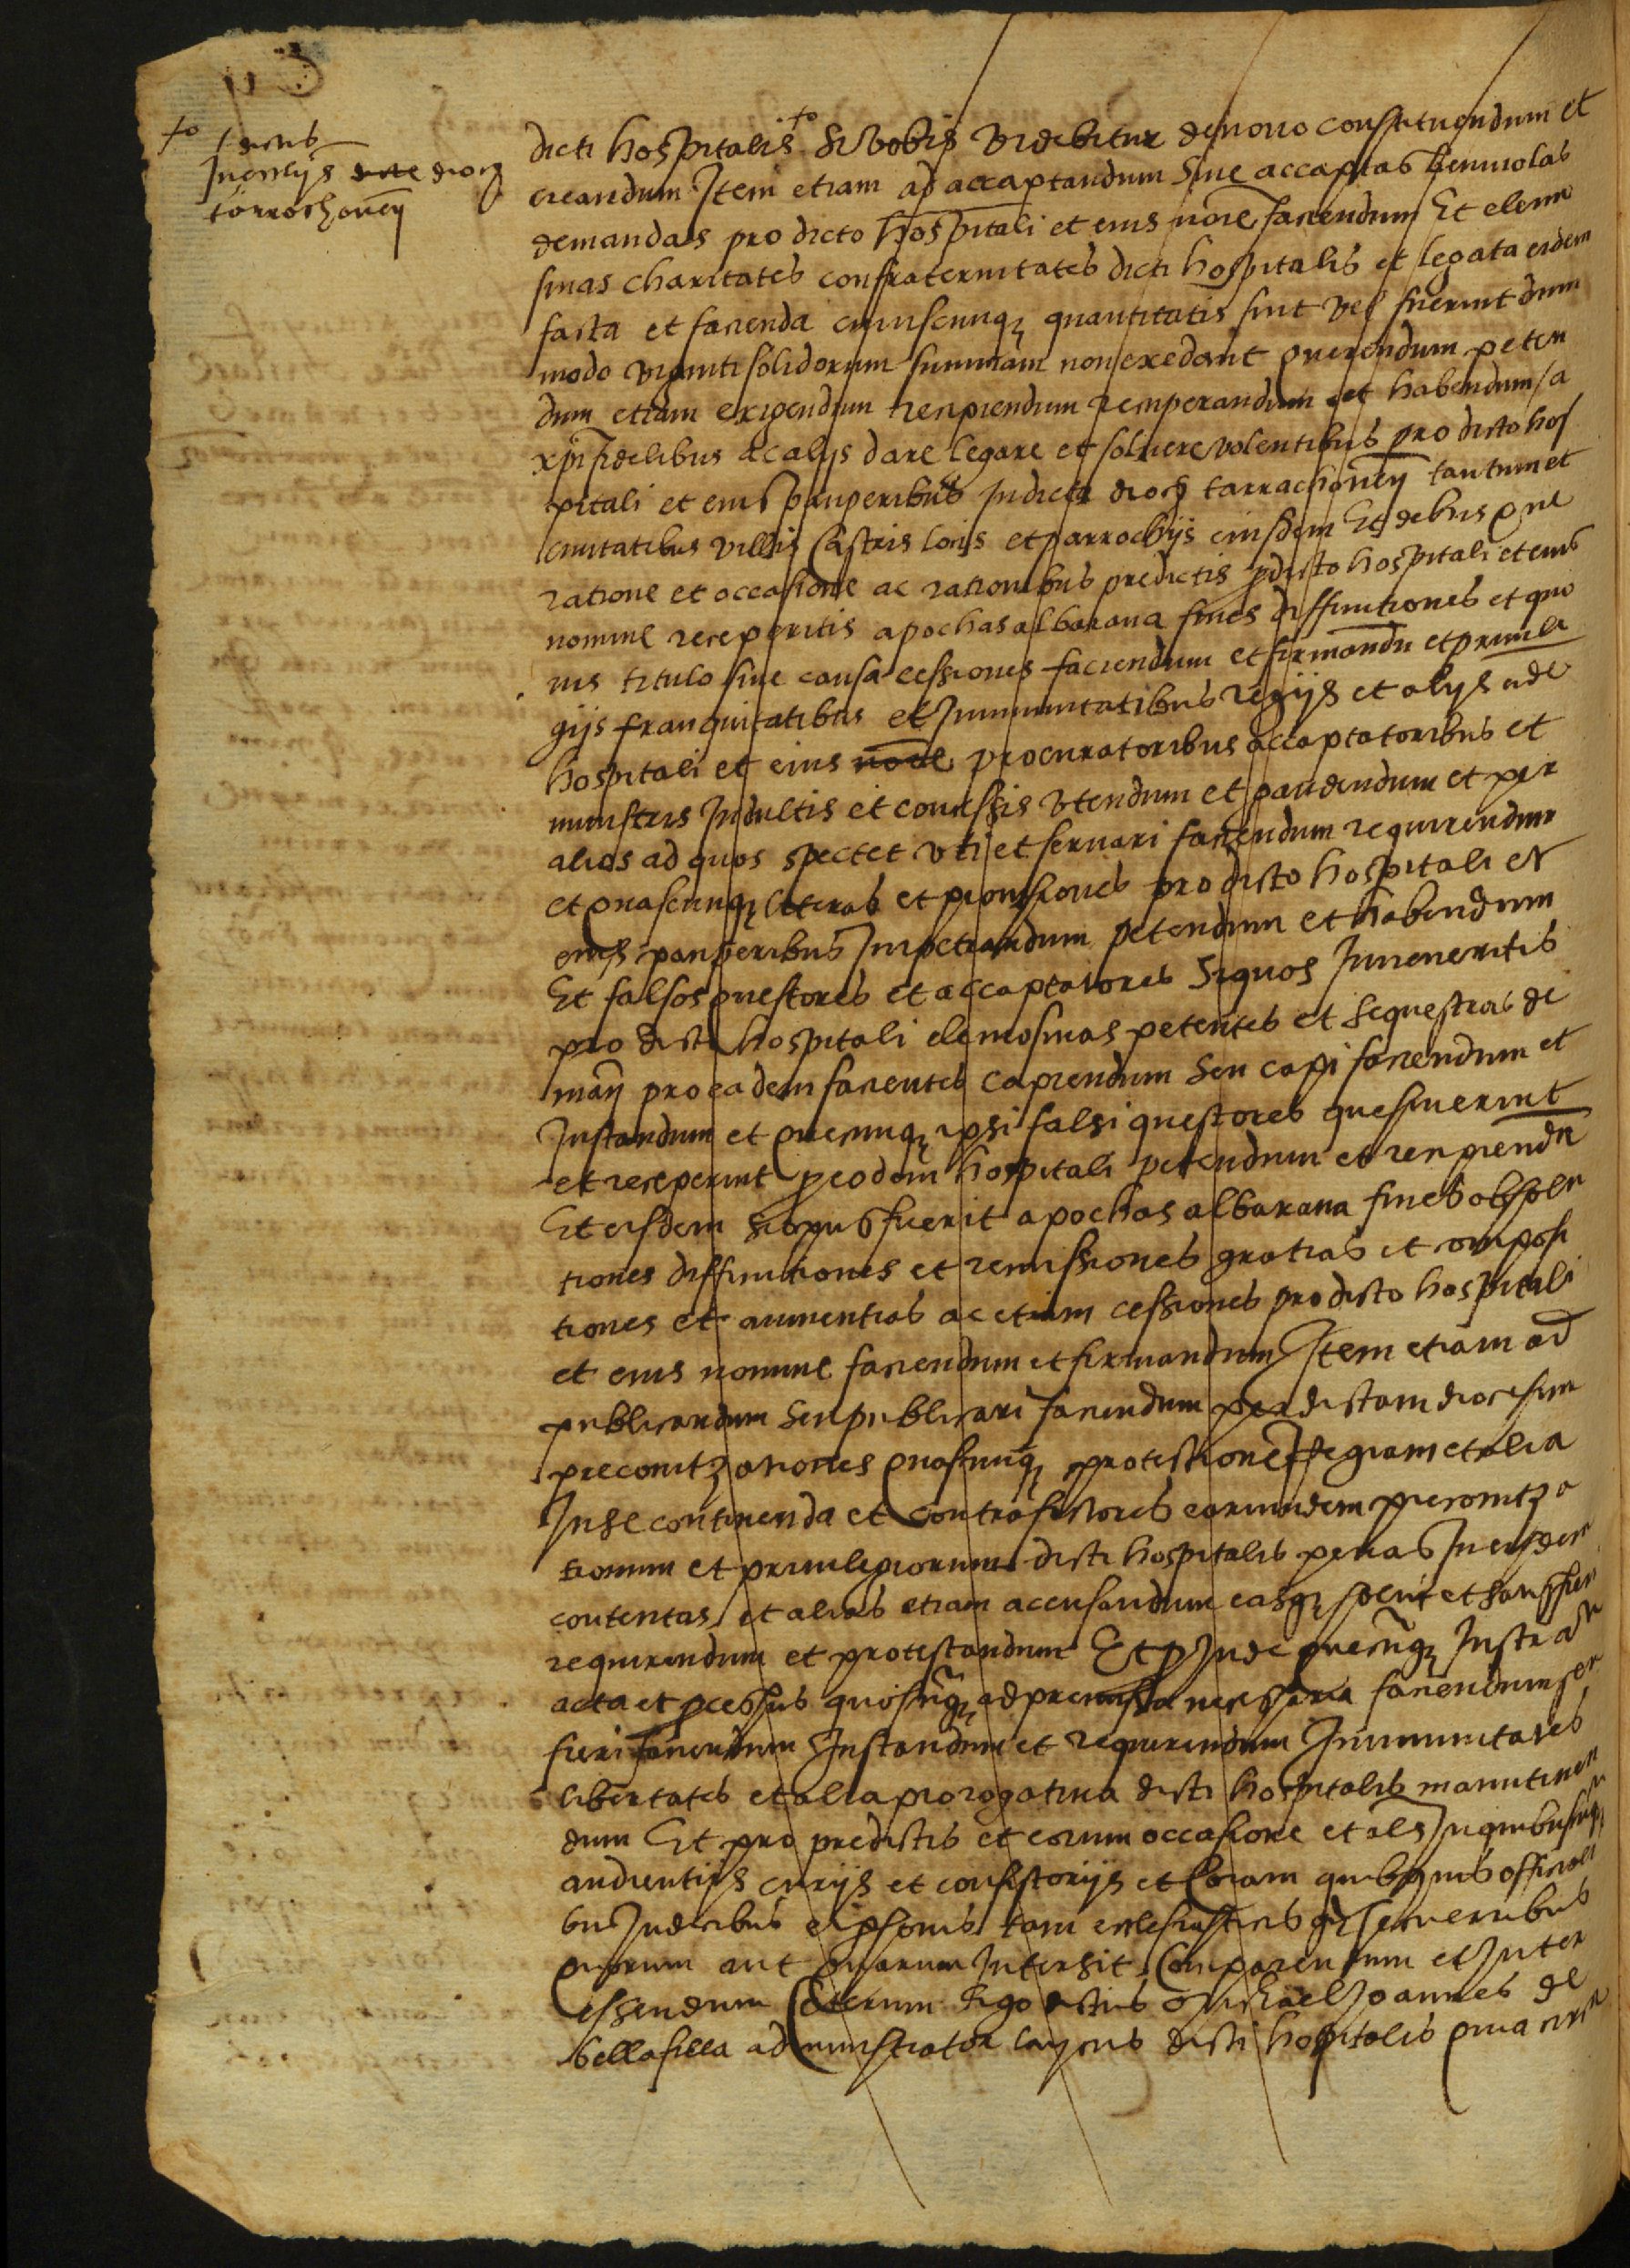 dicti hospitalis si vobis videbitur denovo constituendum et
creandum Item etiam ad accaptandum sive accaptas benivolas
demandas pro dicto hospitali et eius noīe faciendum Et elemo
sinas charitates confraternitates dicti hospitalis et legata eidem
facta et facienda cuiuscunqȝ quantitatis sint vel fuerint dum
modo viginti solidorum summam non exedant querendum peten
dum etiam exigendum recipiendum recuperandum et habendum a
xp̄i fidelibus ac alijs dare legare et solvere volentibus pro dicto hos
pitali et eius pauperibus in dicta dioc̄ tarrachoneñ tantum et
civitatibus villis castris locis et parrochijs eiusdem Et de hijs que
ratione et occasione ac rationibus predictis p dicto hospitali et eius
nomine receperitis apochas albarana fines diffinitiones et quo
vis titulo sive causa cessiones faciendum et firmandū et privile
gijs franquitatibus et Immunitatibus regijs et alijs
hospitali et eius noīe procuratoribus accaptatoribus et
ministris Indultis et concessis utendum et gaudendum et per
alios ad quos spectet uti et servari faciendum requirendum
et quascunqȝ literas et provisiones pro dicto hospitali et
eius pauperibus Impetrandum petendum et habendum
Et falsos questores et accaptatores si quos Inveneritis
pro dicto hospitali elemosinas petentes et sequestras de
mañ pro eadem facientes capiendum seu capi faciendum et
Instandum et quecunqȝ ipsi falsi questores quesiverint
et receperint p eodem hospitali petendum et recipiendū
Et eisdem si opus fuerit apochas albarana fines absolu
tiones diffinitiones et remissiones gratias et composi
tiones et avinentias ac etiam cessiones pro dicto hospitali
et eius nomine faciendum et firmandum Item etiam ad
publicandum seu publicari faciendum per dictam diocesim
preconitzationes quascunqȝ protectionē Regiam et alia
In se continenda et contrafactores earumdem preconitza
tionum et privilegiorum dicti hospitalis penas In eisdem
contentas et alias etiam accusandum easqȝ solvi et
requirendum et protestandum Et p Inde quecūqȝ Instra
acta et pcessus quoscūqȝ ad premissa necessaria faciendum seu
fieri faciendum Instandum et requirendum Immunitates
libertates et alia prorogativa dicti hospitalis manutenen
dum Et pro predictis et eorum occasione et als In quibusvis
audientijs curijs et consistorijs et coram quibusvis officiali
bus Iudicibus et psonis tam ecclesiasticis q̄ secularibus
quorum aut quarum Intersit Comparendum et Inter
essendum Ceterum Ego dictus Michael Joannes de
bellafilla administrator laycus dicti hospitalis
dictus
Inensijs dioc̄
tarrachoneñ